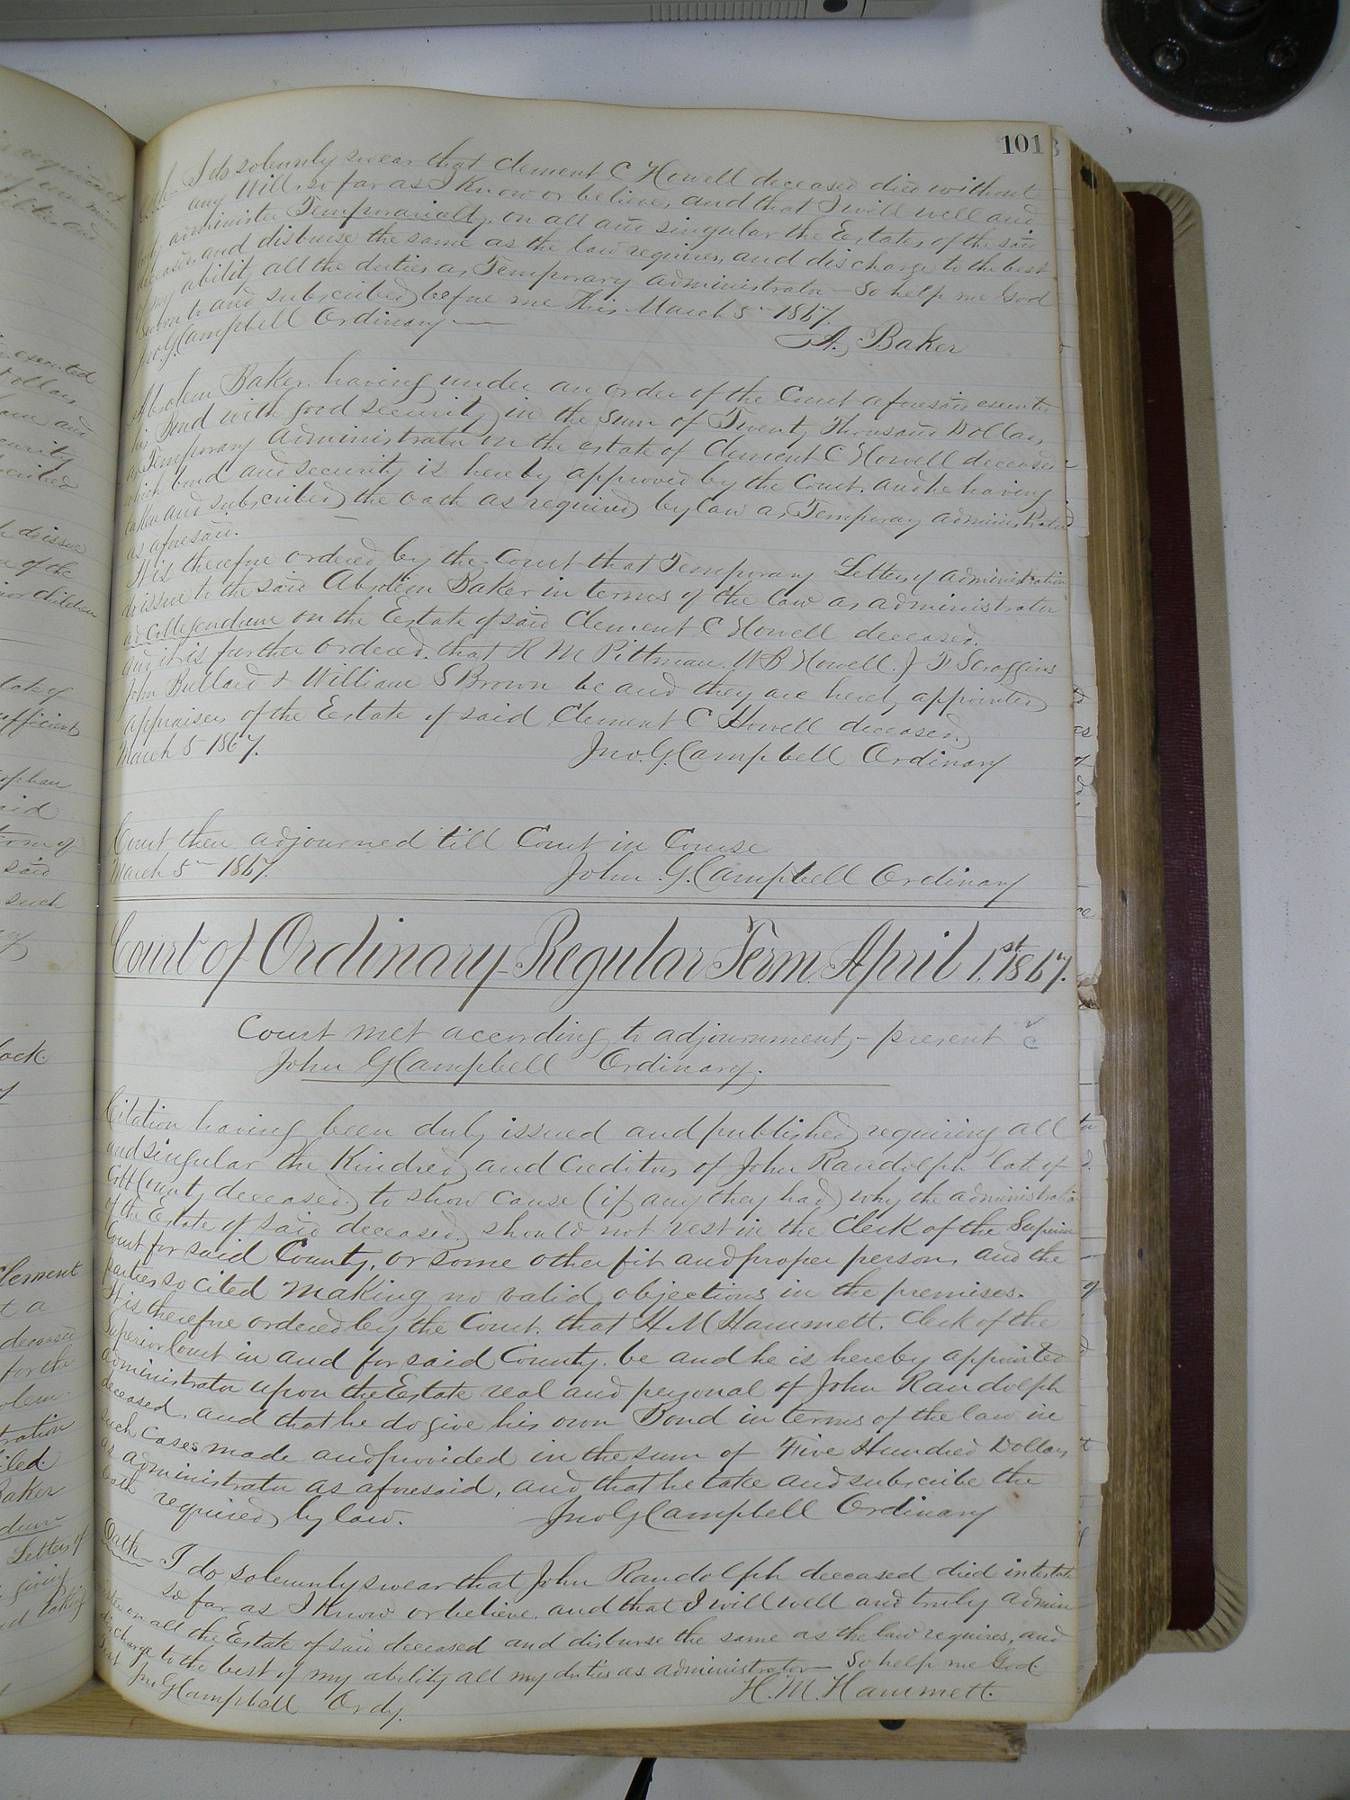 101
Oath I do solemnly swear that Clement C Howell deceased died without
any Will, so far as I know or believe, and that I will well and
truly administer Temporarialty, on all and singular the Estate, of the said
deceased, and disburse the same as the law requires, and discharge to the best
of my ability all the duties as Temporary administrator – So help me God
Sworn to and subscribed before me this March 5th 1867.
Jno. G. Campbell Ordinary — A. Baker
Absolem Baker having under an order of the Court aforesaid executed
his Bond with good security in the sum of Twenty Thousand Dollars
as Temporary administrator on the estate of Clement C Howell deceased
which bond and security is hereby approved by the Court. and he having
taken and subscribed the oath as required by law as Temporary administrator
as aforesaid.
It is therefore ordered by the Court that Temporary Letters of administration
do issue to the said Absolem Baker in terms of the law as administrator
ad colligendum on the Estate of said Clement C Howell deceased.
and it is further ordered, that R M Pittman. W B Howell. J F Scoggins
John Bullard & William S Brown be and they are hereby appointed
appraisers of the Estate of said Clement C Howell deceased.
March 5 1867. Jno. G. Campbell Ordinary
Court then adjourned till Court in Course
March 5th 1867. John G. Campbell Ordinary
Court of Ordinary Regular Term April 1st 1867.
Court met according to adjournment, – present
John G Campbell Ordinary.
Citation having been duly issued and published requiring all
and singular the Kindred and Creditors of John Randolph late of
Cobb County deceased to show cause (if any they had) why the administration
of the Estate of said deceased should not vest in the Clerk of the Superior
Court for said County, or some other fit and proper person, and the
parties so cited making no valid objections in the premises.
It is therefore ordered by the Court. that H. M Hammett. Clerk of the
Superior Court in and for said County. be and he is hereby appointed
administrator upon the Estate real and personal of John Randolph
deceased, and that he do give his own Bond in terms of the law in
such cases made and provided in the sum of Five Hundred Dollars
as administrator as aforesaid, and that he take and subscribe the
Oath required by law. Jno G Campbell Ordinary
Oath – I do solemnly swear that John Randolph deceased died intestate
so far as I know or believe, and that I will well and truly admin
ister on all the Estate of said deceased and disburse the same as the law requires, and
discharge to the best of my ability all my duties as administrator – So help me God
Jno G Campbell Ordy. H. M. Hammett.